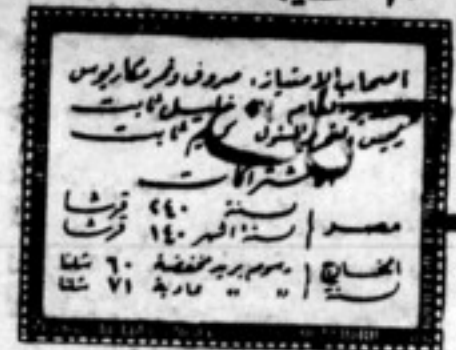 اصحاب الامتياز: صروف ونمر مكاريوس
خليل ثابت
رئيس التحرير المسئول كريم ثابت
الاشتراكات
مصر سنة ٢٤٠ قرشا
ستة اشهر ١٤٠ قرشا
الخارج رسوم بريد مخفضة ٦٠ شلنا
سنة " " عادية ٧١ شلنا